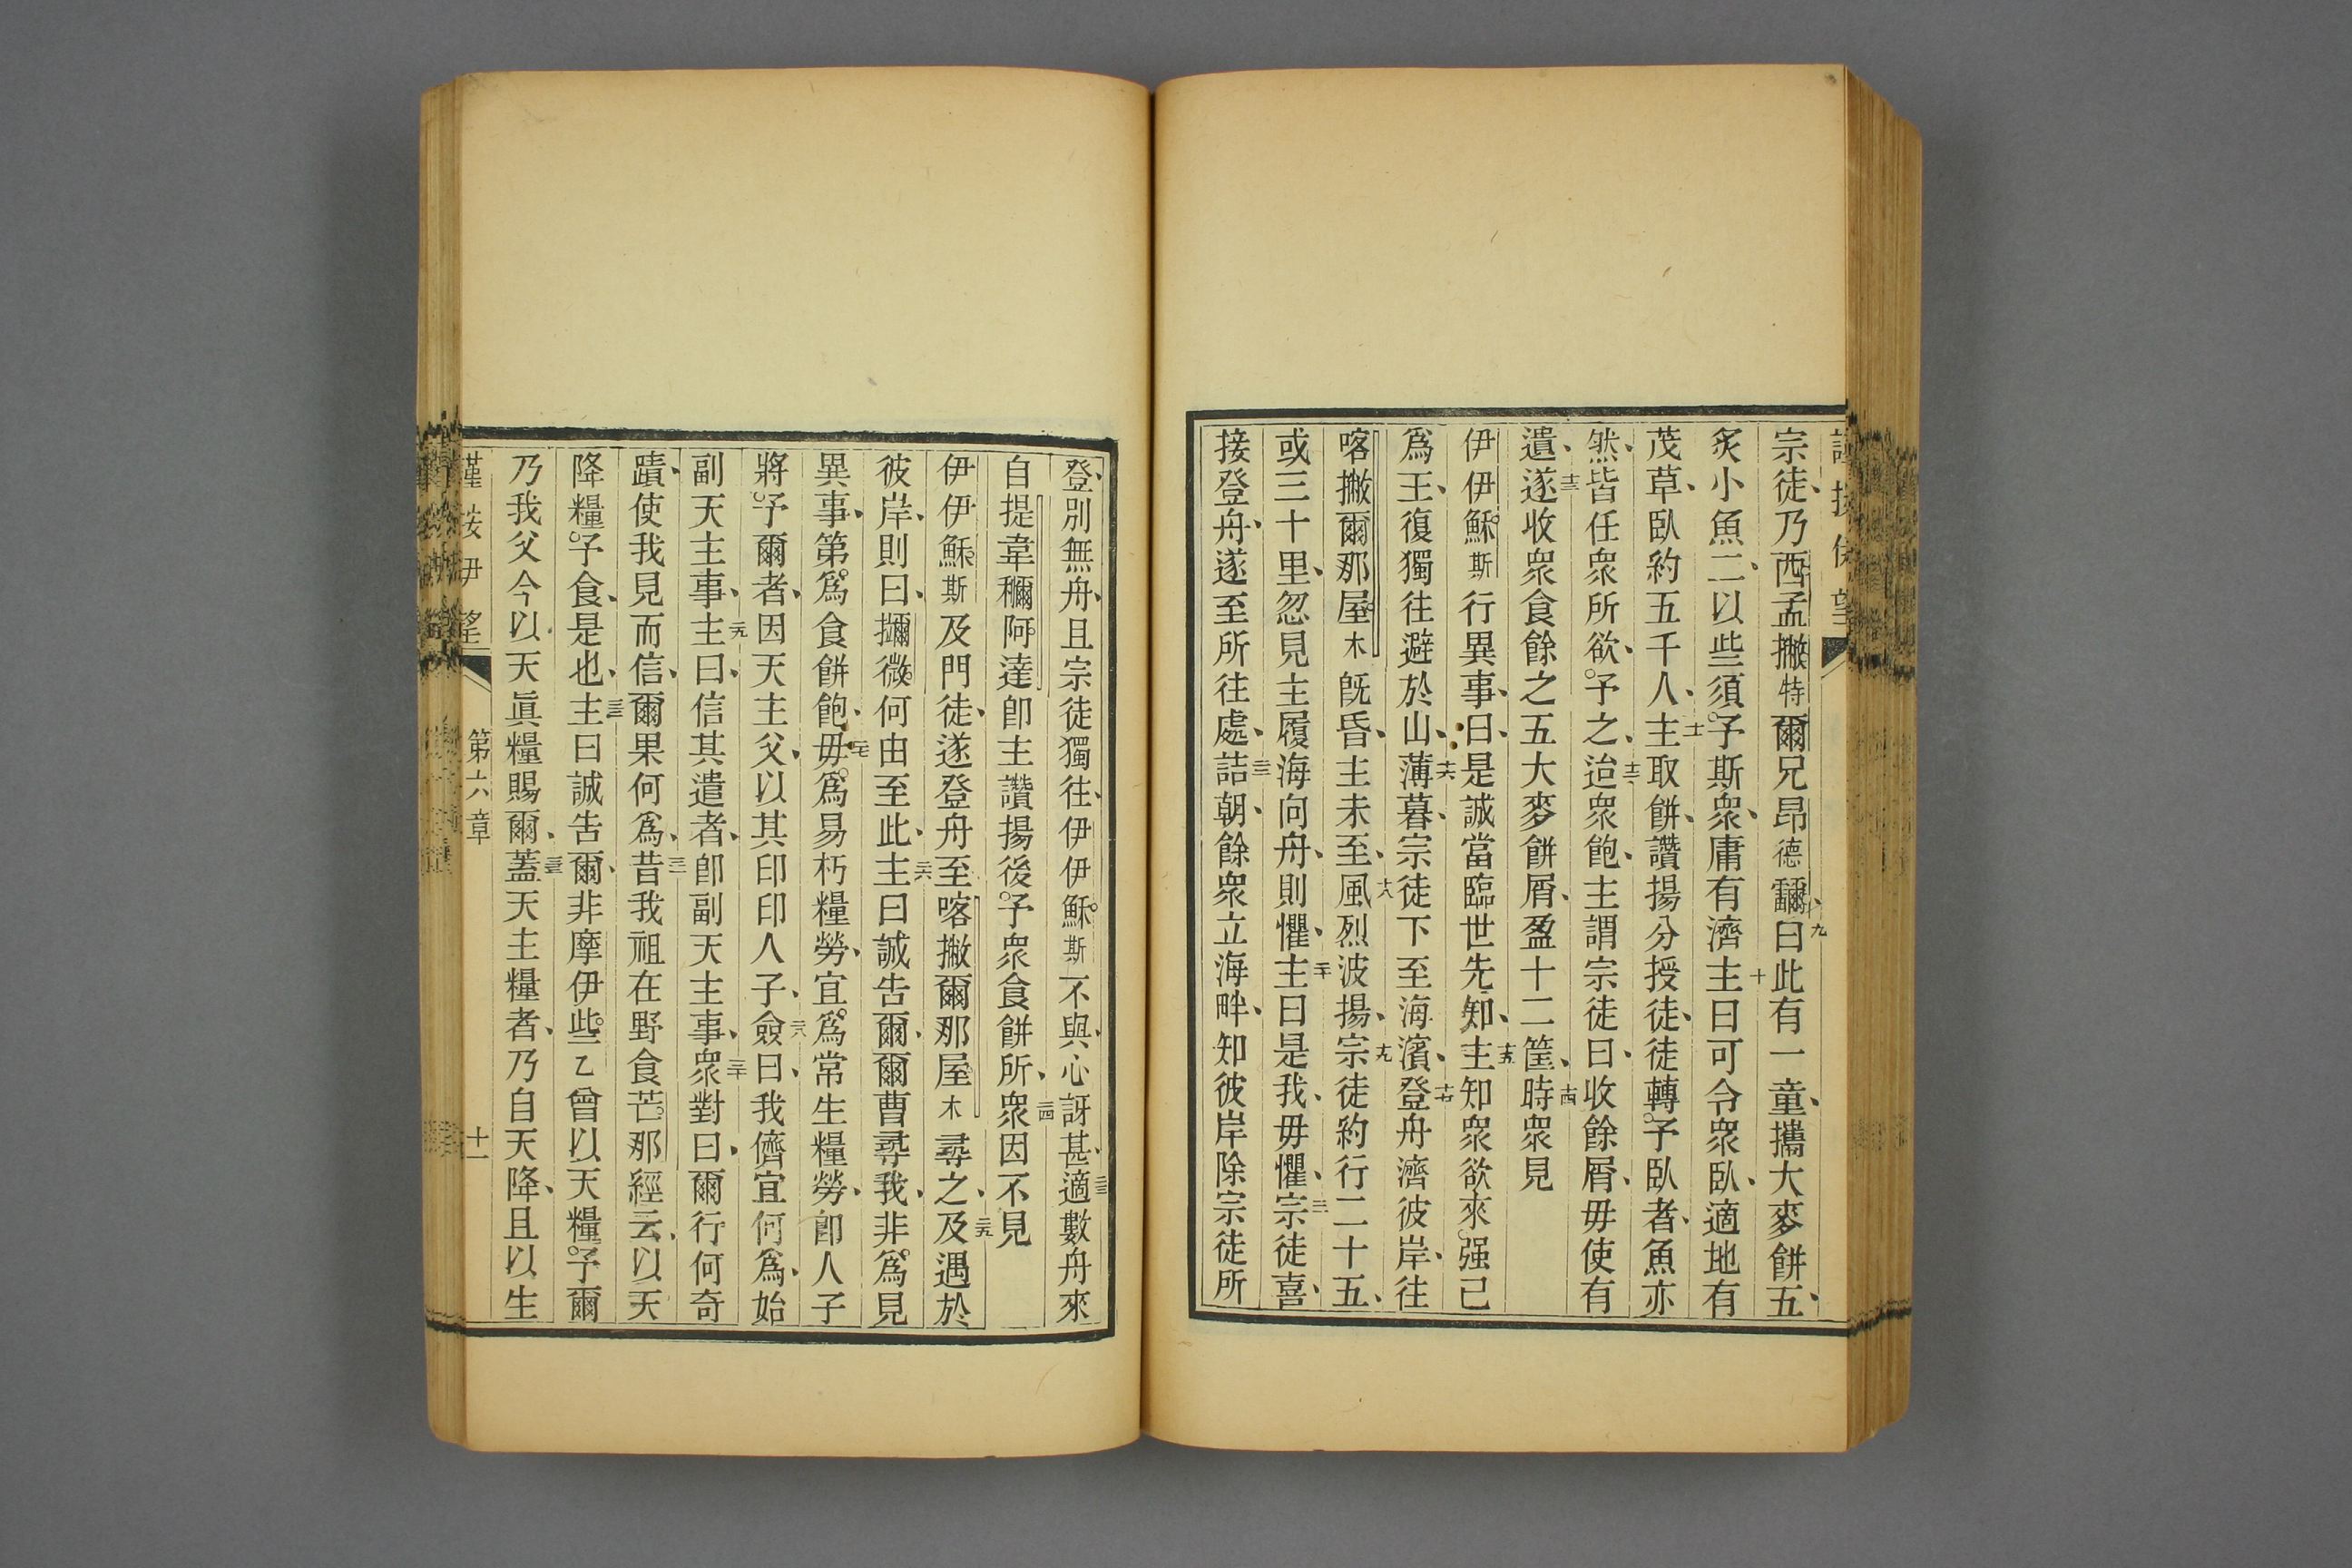 宗徒、乃西孟撇特爾兄昂德𮦀、九曰此有一童、攜大麥餅五、
炙小魚、二以些須。予斯衆、庸有濟十主曰可令衆臥、適地有
茂草、臥約五千人、十一主取餅、讚揚分授徒、徒轉。予臥者、魚亦
然、皆任衆所欲。予之、十二迨衆飽、主謂宗徒曰、收餘屑、毋使有
遺、十三遂收衆食餘之五大麥餅屑、盈十二筐、十四時衆見
伊伊穌斯行異事、曰、是誠當臨世先知、十五主知衆欲來。强己
爲王、復獨往避於山、十六薄暮、宗徒下至海濱、十七登舟濟彼岸、往
喀撇爾那屋木旣昏、主未至、十八風烈波揚、十九宗徒約行二十五、
或三十里、忽見主履海向舟、則懼、二十主曰是我、毋懼、二一宗徒喜、
接登舟、遂至所往處、二二詰朝、餘衆立海畔、知彼岸除宗徒所
登、別無舟、且宗徒獨往、伊伊穌斯不與、心訝甚、二三適數舟來
自提韋穪阿達卽主讚揚後。予衆食餅所、二四衆因不見
伊伊穌斯及門徒、遂登舟至喀撇爾那屋木尋之、二五及遇於
彼岸、則曰、擟微。何由至此、二六主曰誠告爾、爾曹尋我、非。爲見
異事、第。爲食餅飽、二七毋。爲易朽糧勞、宜。爲常生糧勞、卽人子
將。予爾者、因天主父、以其印印人子、二八僉曰、我儕宜何爲、始
副天主事、二九主曰、信其遣者、卽副天主事、三十衆對曰、爾行何奇
蹟、使我見而信、爾果何爲、三一昔我祖在野食芒。那經云、以天
降糧。予食、是也、三二主曰誠告爾、非摩伊。些乙曾以天糧。予爾
乃我父今以天眞糧賜爾、三三蓋天主糧者、乃自天降、且以生
第六章
十一